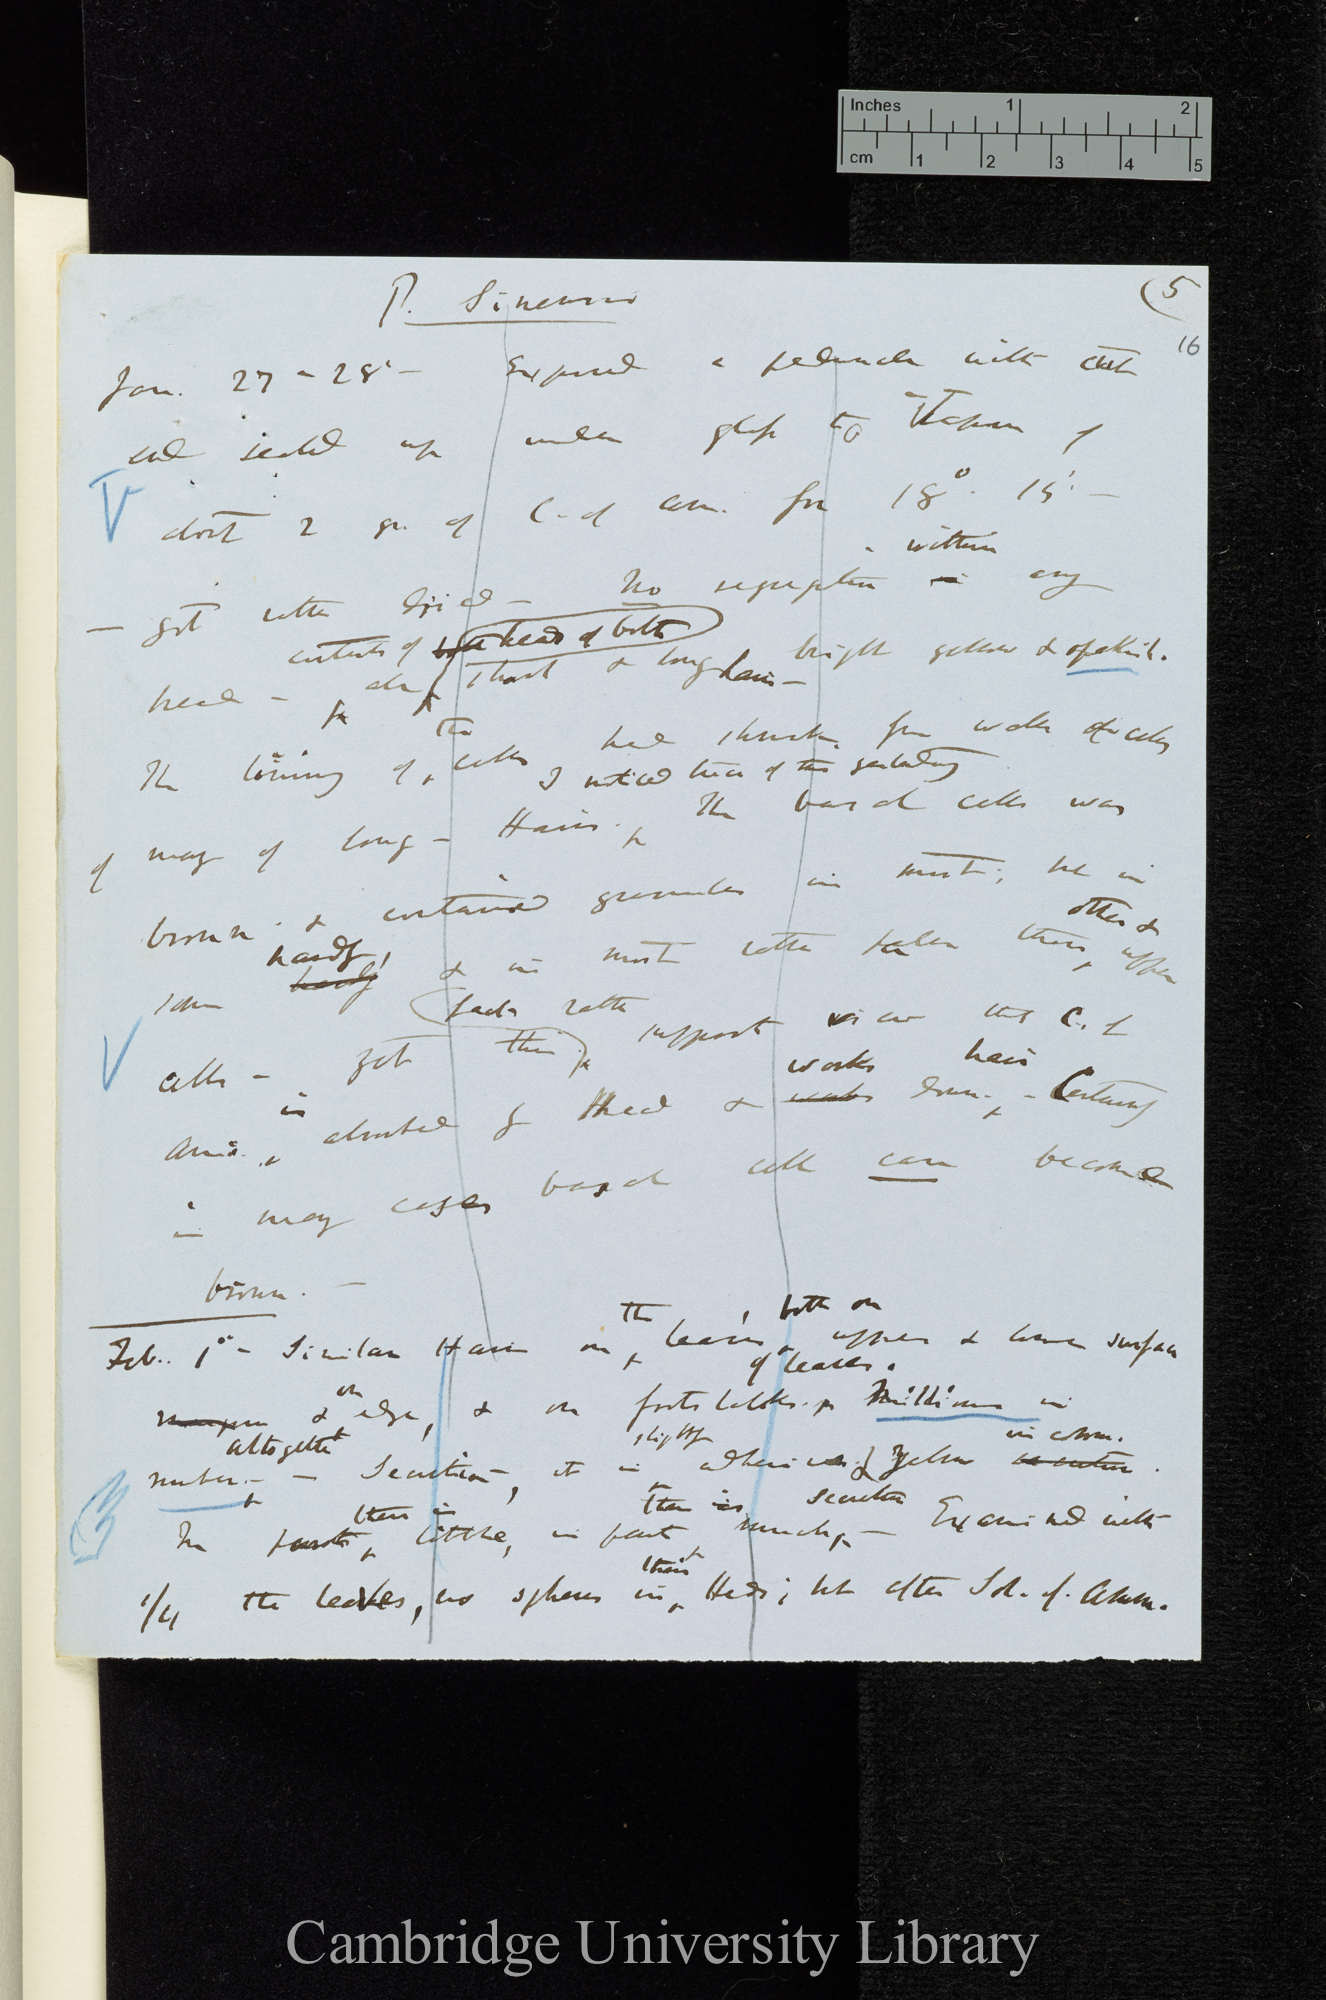 Inches 1 2
cm 1 2 3 4 5
P. Sinensis
(5
16
Jan. 27 - 28 - Exposed a peduncle with cut
end sealed up under glass to Vapour of
about 2 gr. of C. of Am. for 18°. 15' —
— got rather dried — No segregation in any
within
contents of heads of both
head — short & long hairs — bright yellow &
The lining of the cells had shrunk from walls of cells
I noticed trace of this yesterday
of many of long - Hairs. The basal cells was
brown & contained granules in most; but in
some hardly, & in most rather paler than upper
others &
cells — yet these facts rather support view that C. of
Amm. is absorbed by Head & works down hair — Certainly
in many cases basal cell can become
brown. —
Feb. 1° — Similar Hairs on the leaves, both on upper & lower surface
of leaves.
& on edge, & on footstalks. Millions in
number. — altogether Secretion, it is slightly adhesive & yellow in colour.
In parts there is little, in part there is much secretion — Examined with
1/4 the leaves, no spheres in their Heads; but after Sol. of. Amm.
Cambridge University Library